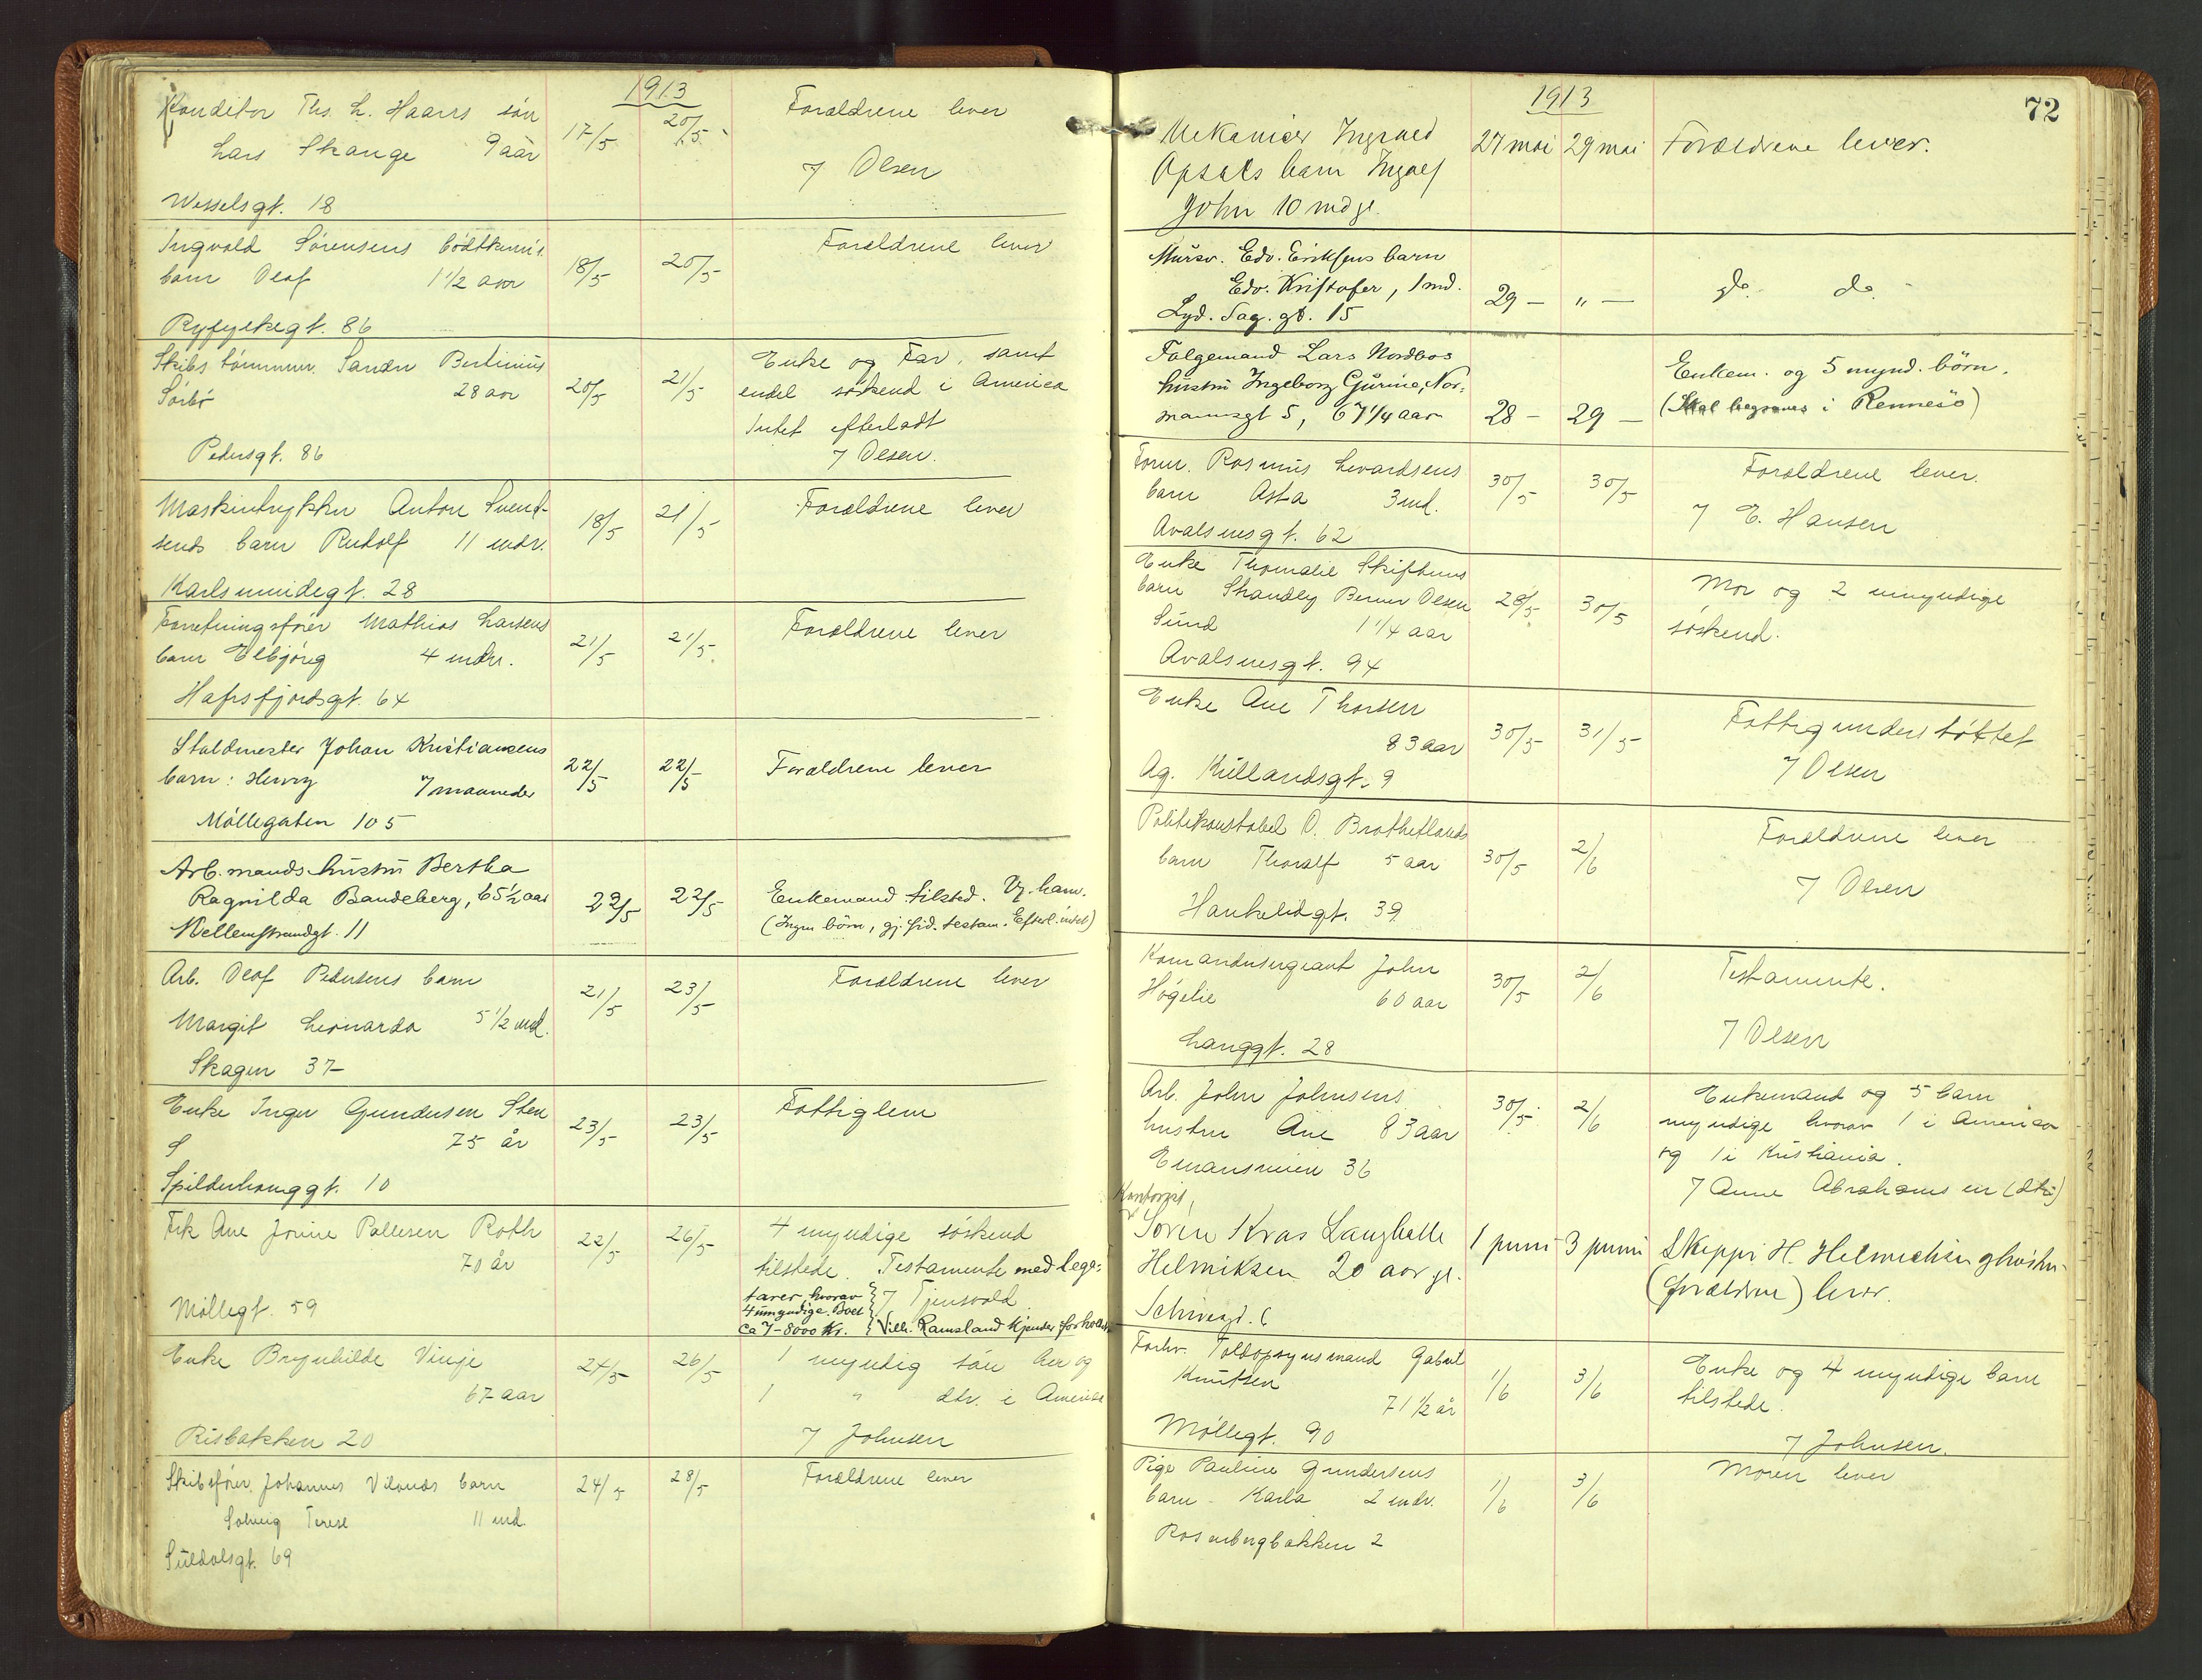 1913
Konditor Ths. L. Haarrs søn
Lars Skange 9 aar
17/5 20/5
Forældrene lever
7 Olsen
Wesselsgt. 18
Ingvald Sørensens bødtkermst.
barn Olaf 1 1/2 aar
18/5 20/5
Forældrene lever
Ryfylkegt. 86
Skibstømmerm. Sander Bertinius
Sørbø 28 aar
20/5 21/5
Enke og Far, samt
endel søskend i America
Intet efterladt
7 Olsen.
Pedersgt. 86
Maskintrykker Anton Svend-
sends barn Rudolf 11 mdr.
18/5 21/5
Forældrene lever
Karlsminidegt. 28
Forretningsfører Mathias Larsens
barn Elbjørg 4 mdr.
21/5 21/5
Forældrene lever
Hafrsfjordsgt. 64
Staldmester Johan Kristiansens
barn: Henry 7 maaneder
22/5 22/5
Forældrene lever
Møllegaten 105
Arb.mands hustru Bertha
Ragnilda Bandeberg, 65 1/2 aar
22/5 22/5
Enkemand tilsted. Vg. ham.
(Ingen børn, gj. sid. testam. Efterl. intet)
Nellemstrandgt. 11
Arb. Olaf Pedersens barn
Margit Leonarda 5 1/2 md.
21/5 23/5
Forældrene lever
Skagen 37
Enke Inger Gundersen Sten
75 år
23/5 23/5
Fattiglem
Spilderhauggt. 10
Frk Ane Jorine Pallesen Roth
70 år
22/5 26/5
4 myndige søskend
tilstede. Testamente med lega-
tarer, hvorav
4 umyndige. Boet
ca 7-8000 Kr.
7 Tjensvold
Vilh. Ramsland kjender forhold
Møllegt. 59
Enke Brynhilde Vinje
67 aar
24/5 26/5
1 myndig søn her og
1 " dtr. i Amerika
7 Johnsen
Risbakken 20
Skibsfører Johannes Vilands barn
Solveig Terese 11 md.
24/5 28/5
Forældrene lever
Suldalsgt. 69
72
1913
Mekaniker Ingvald
Opsals barn Ingolf
John 10 mdgl.
27 mai 29 mai
Forældrene lever.
Mursv. Edv. Eriksens barn
Edv. Kristofer, 1 md.
Lyd. Sag. gt. 15
29 — " —
do. do.
Følgemand Lars Nordbos
hustru Ingeborg Gurine, Nor-
mannsgt 5, 67 1/4 aar
28 — 29 —
Enkem. og 5 mynd. børn.
(Skal begraves i Rennesø)
Form. Rasmus Levardsens
barn Asta 3 md.
30/5 30/5
Forældrene lever.
7 E. Hansen
Avalsnesgt. 62
Enke Thomalie Skiftuns
barn Standley Berner Olsen
Sund 1 1/4 aar
28/5 30/5
Mor og 2 umyndige
søskend.
Avalsnesgt. 94
Enke Ane Thorsen
83 aar
30/5 31/5
Fattigunderstøttet
7 Olsen
Ag. Kiellandsgt. 9
Politikonstabel O. Brathetlands
barn Thoralf 5 aar
30/5 2/6
Forældrene lever
7 Olsen
Haukelidgt. 39
Komandersergeant John
Høgelie 60 aar
30/5 2/6
Testamente.
7 Olsen
Langgt. 28
Arb. John Johnsens
hustru Ane 83 aar
30/5 2/6
Enkemand og 5 barn
myndige hvorav 1 i America
og 1 i Kristiania.
7 Anne Abrahamsen (dtr)
Emausveien 36
Kontorist,
Sören Kras Langhelle
Helmiksen 20 aar gl.
1 juni 3 juni
Skippr H. Helmichsen g hustru
(forældrene) lever.
Forhv. Toldopsynsmand Gabriel
Knutsen
71 1/2 år
1/6 3/6
Enke og 4 myndige barn
tilstede.
7 Johnsen.
Møllegt. 90
Pige Pauline Gundersens
barn Karla 2 mdr.
1/6 3/6
Moren lever
Rosenbergbakken 2